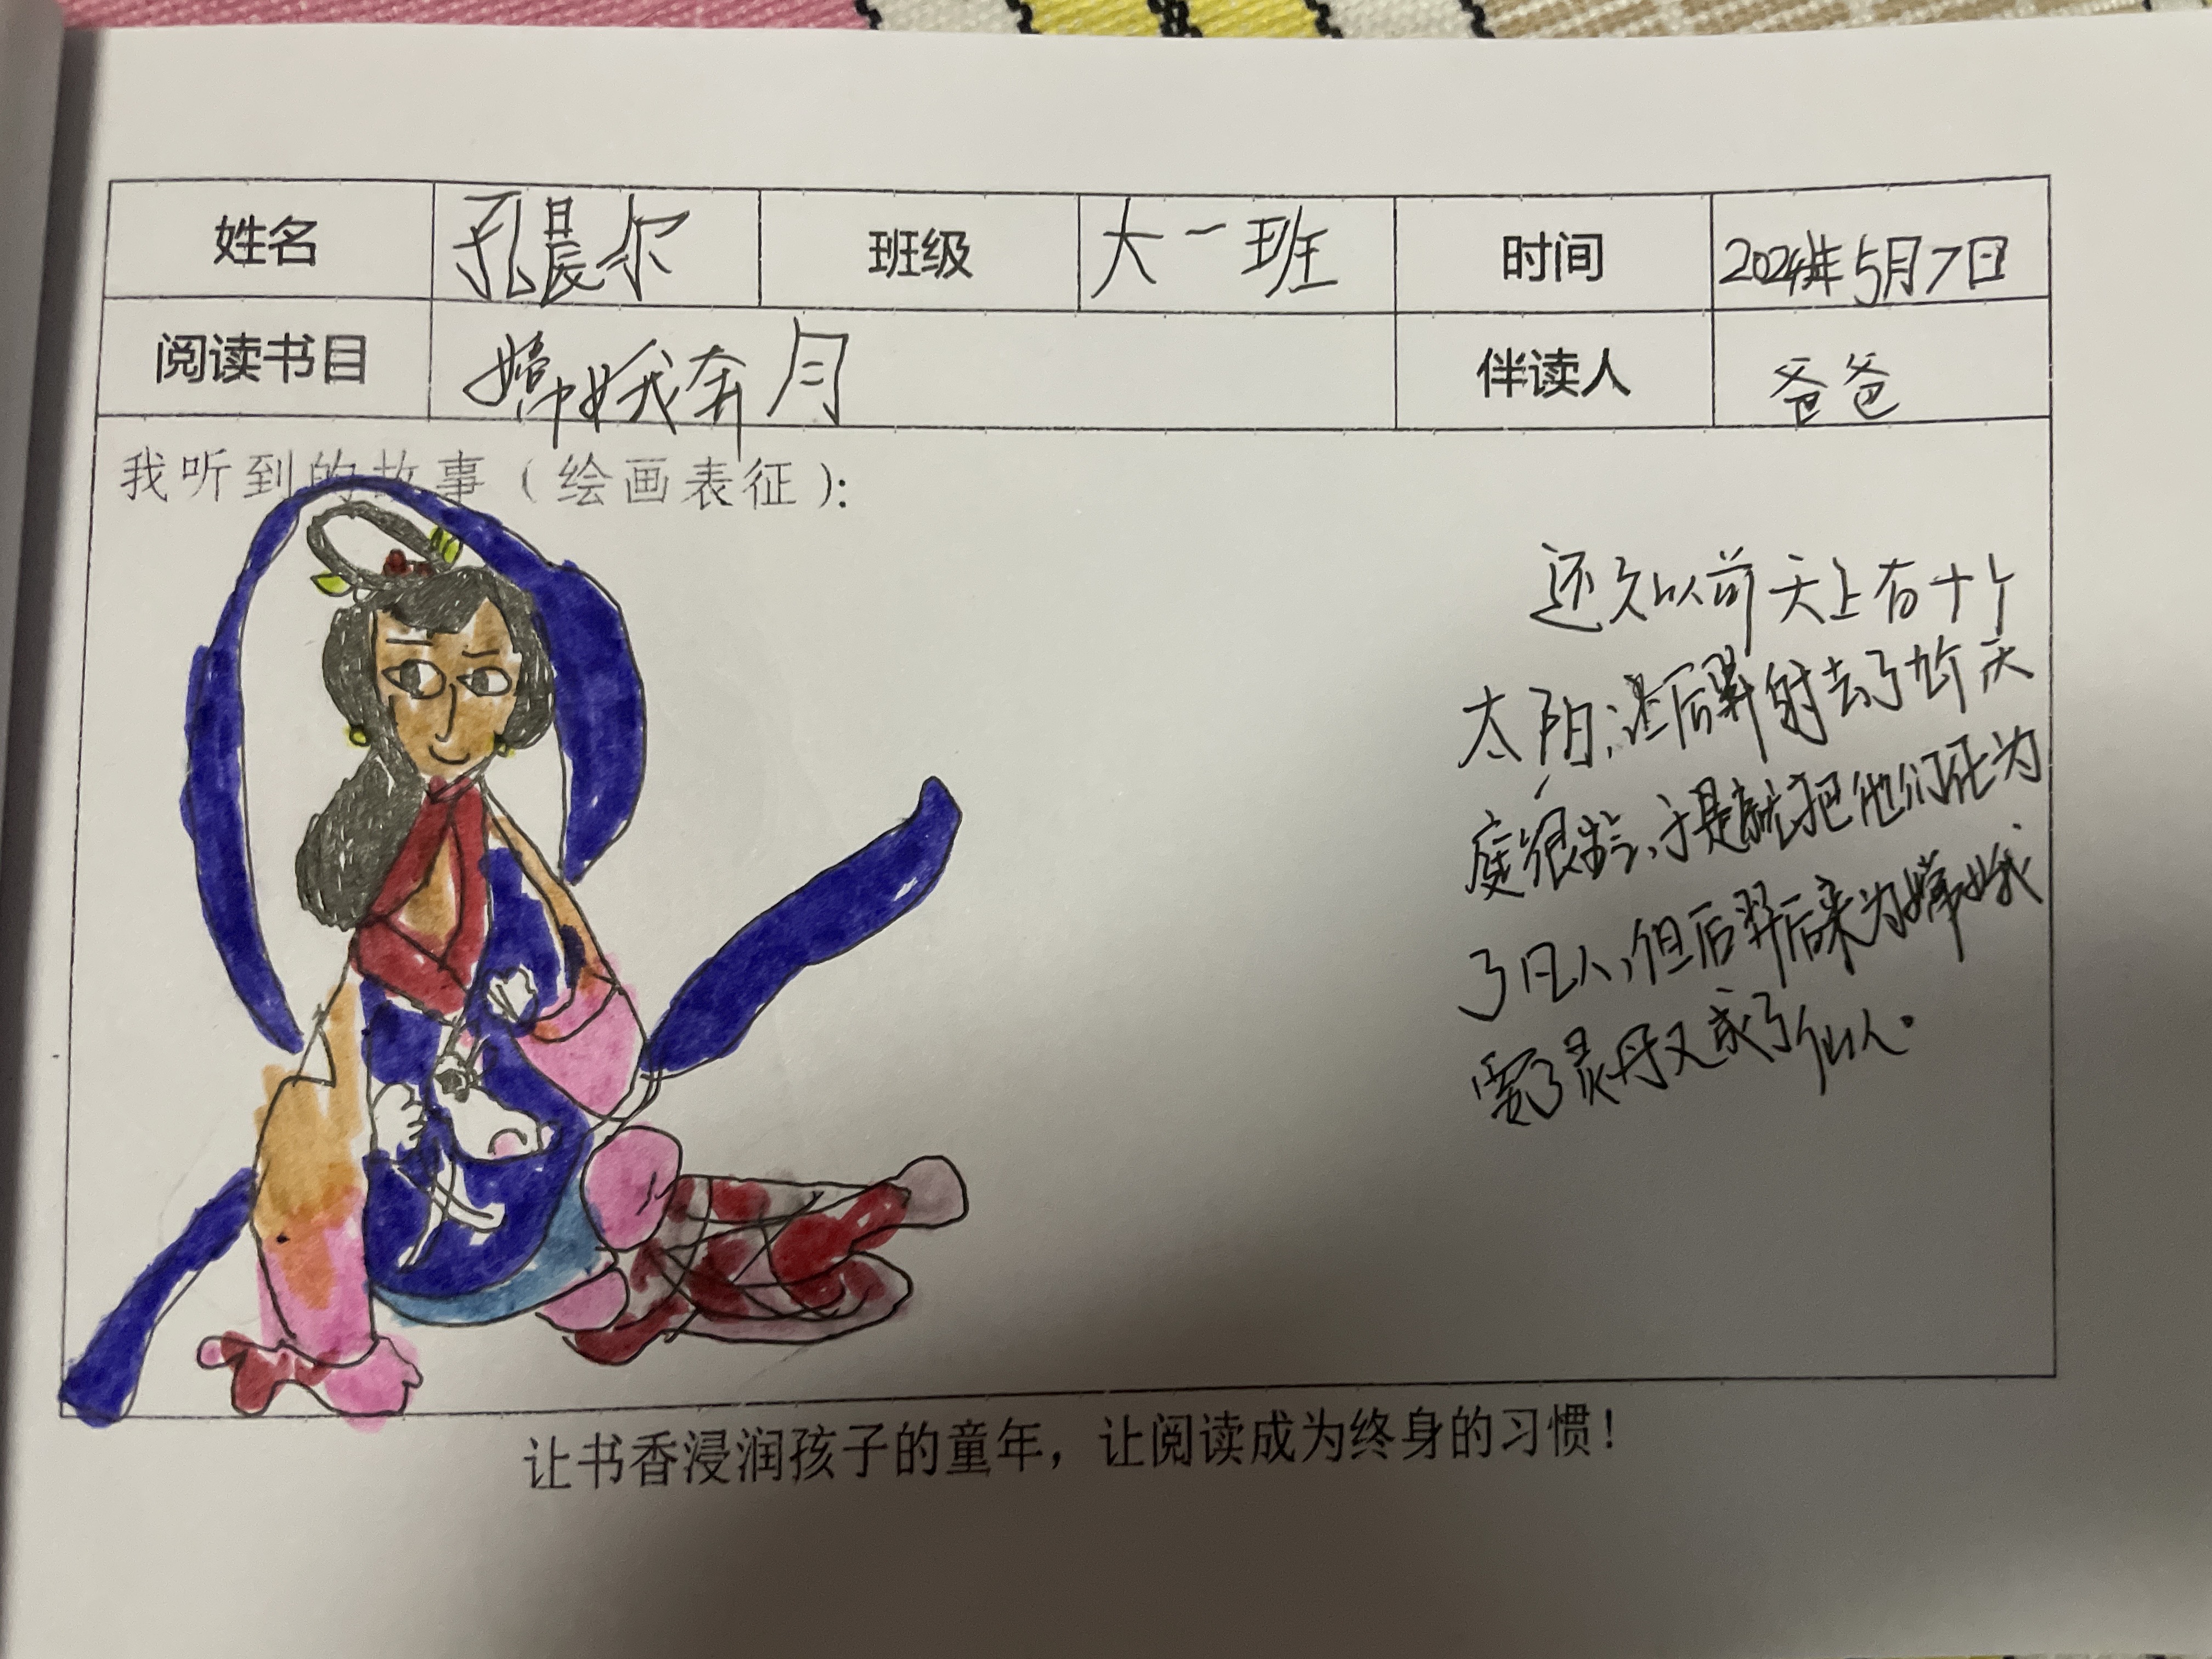 姓名 孔晨尔 班级 大一班 时间 2024年5月7日
阅读书目 嫦娥奔月 伴读人 爸爸
我听到的故事（绘画表征）：
还久以前天上有十个
太阳，后羿射去了九个天
庭很，于是就把他们化为
了凡人，但后羿后来为嫦娥
了灵丹又成了仙人。
让书香浸润孩子的童年，让阅读成为终身的习惯！